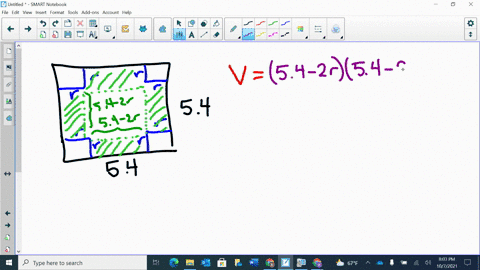 Untitled * - SMART Notebook
File Edit View Insert Format Tools Add-ons Account Help
V = (5.4-2r)(5.4-
r r
r r
5.4-2r
5.4-2r
r r
r r
5.4
5.4
Type here to search
67°F
9:03 PM
10/7/2021